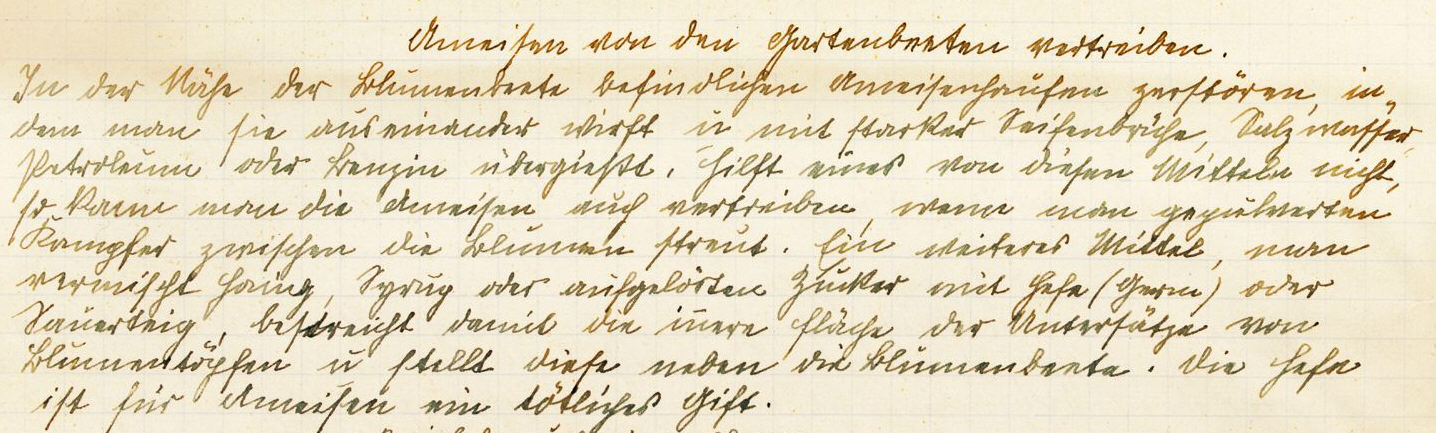 Ameisen von den Gartenbeeten vertreiben.
In der Nähe der Blumenbeete befindlichen Ameisenhaufen zerstören, in„
dem man sie auseinander wirft u mit starker Seifenbrühe, Salzwasser,
Petroleum oder Benzin übergießt. Hilft eines von diesen Mitteln nicht,
so kann man die Ameisen auch vertreiben, wenn man gepulverten
Kampfer zwischen die Blumen streut. Ein weiteres Mittel, man
vermischt Honig, Syrup oder aufgelösten Zucker mit Hefe (Germ) oder
Sauerteig, bestreicht damit die inere Fläche der Untersätze von
Blumentöpfen u stellt diese neben die Blumenbeete. Die Hefe
ist für Ameisen ein tötliches Gift.